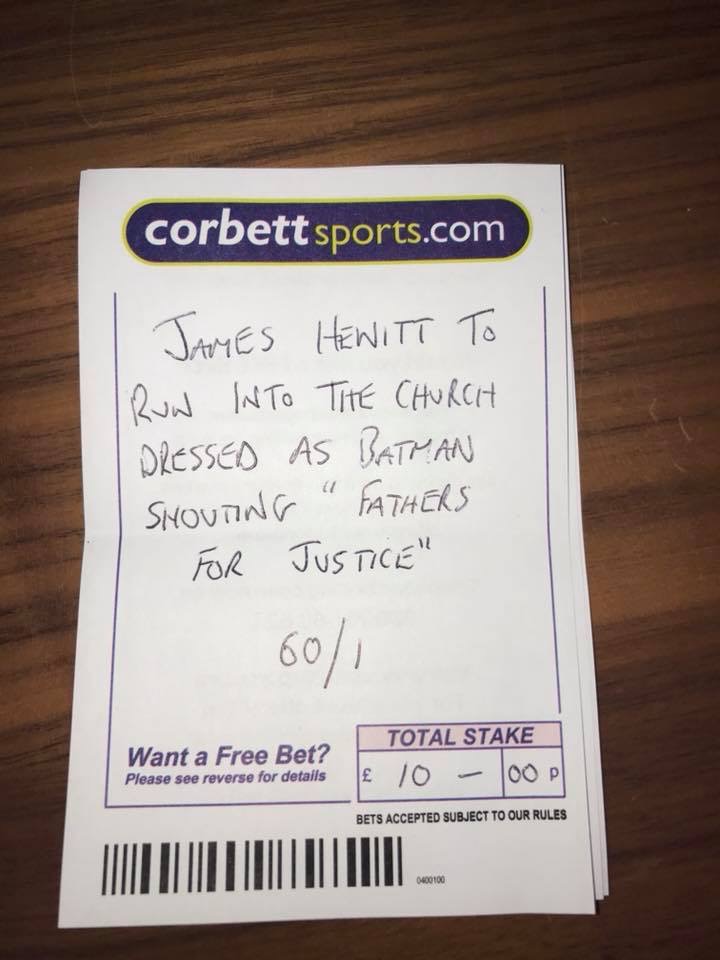 corbettsports.com
JAMES HEWITT TO
RUN INTO THE CHURCH
DRESSED AS BATMAN
SHOUTING " FATHERS
FOR JUSTICE"
60/1
Want a Free Bet?
Please see reverse for details
TOTAL STAKE
£ 10 - 00 p
BETS ACCEPTED SUBJECT TO OUR RULES
0400100